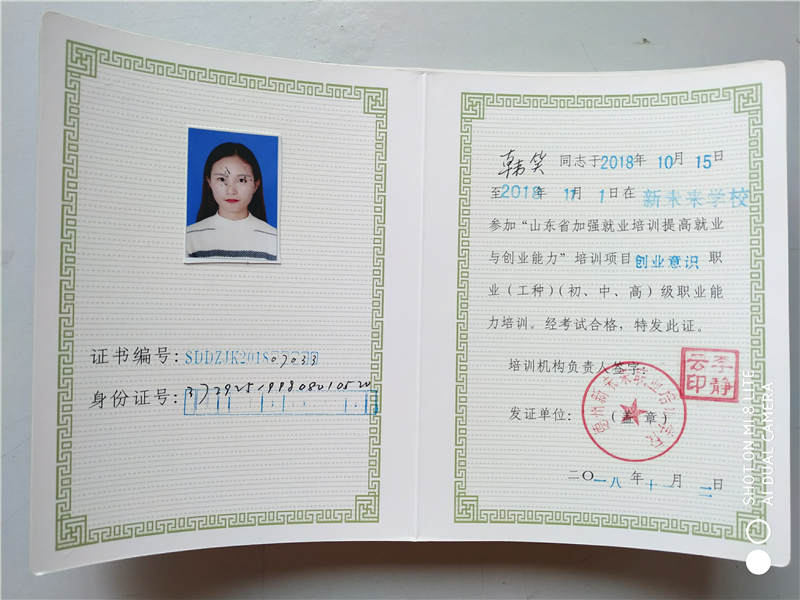 证书编号：SDDZJK201807033
身份证号：372925199808010520
韩笑 同志于2018年 10月 15日
至2018年 11月 1日在 新未来学校
参加“山东省加强就业培训提高就业
与创业能力”培训项目创业意识 职
业（工种）（初、中、高）级职业能
力培训。经考试合格，特发此证。
培训机构负责人签字：
李静云印
发证单位：（盖章）
德州新未来职业培训学校
二〇一八 年 十 月 日
SHOT ON MI 8 LITE
AI DUAL CAMERA